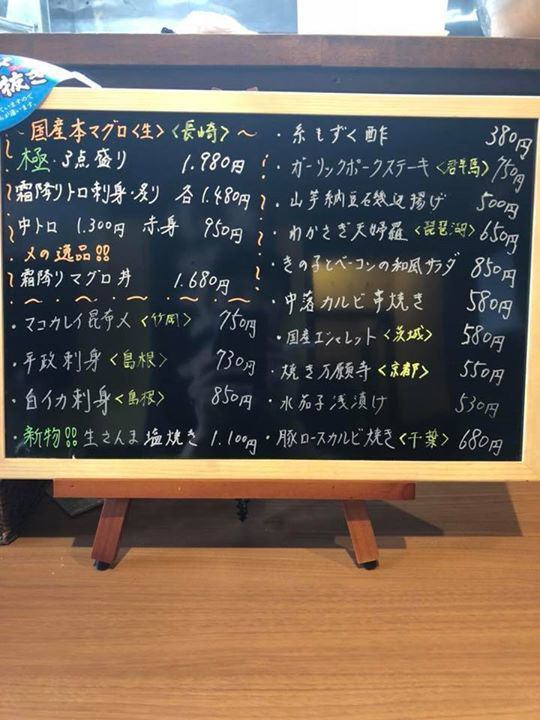 抜き
～国産本マグロ〈生〉〈長崎〉～
極・3点盛り 1.980円
霜降りトロ刺身・炙り 各1.480円
中トロ 1.300円 赤身 950円
〆の逸品!!
霜降りマグロ丼 1.680円
・マコカレイ昆布〆〈竹岡〉 750円
・平政刺身〈島根〉 730円
・白イカ刺身〈島根〉 850円
・新物!!生さんま塩焼き 1.100円
・糸もずく酢 380円
・ガーリックポークステーキ〈群馬〉 750円
・山芋納豆石磯辺揚げ 500円
・わかさぎ天婦羅〈琵琶湖〉 650円
・きの子とベーコンの和風サラダ 850円
・中落カルビ串焼き 580円
・国産エシャレット〈茨城〉 580円
・焼き万願寺〈京都〉 550円
・水茄子浅漬け 530円
・豚ロースカルビ焼き〈千葉〉 680円